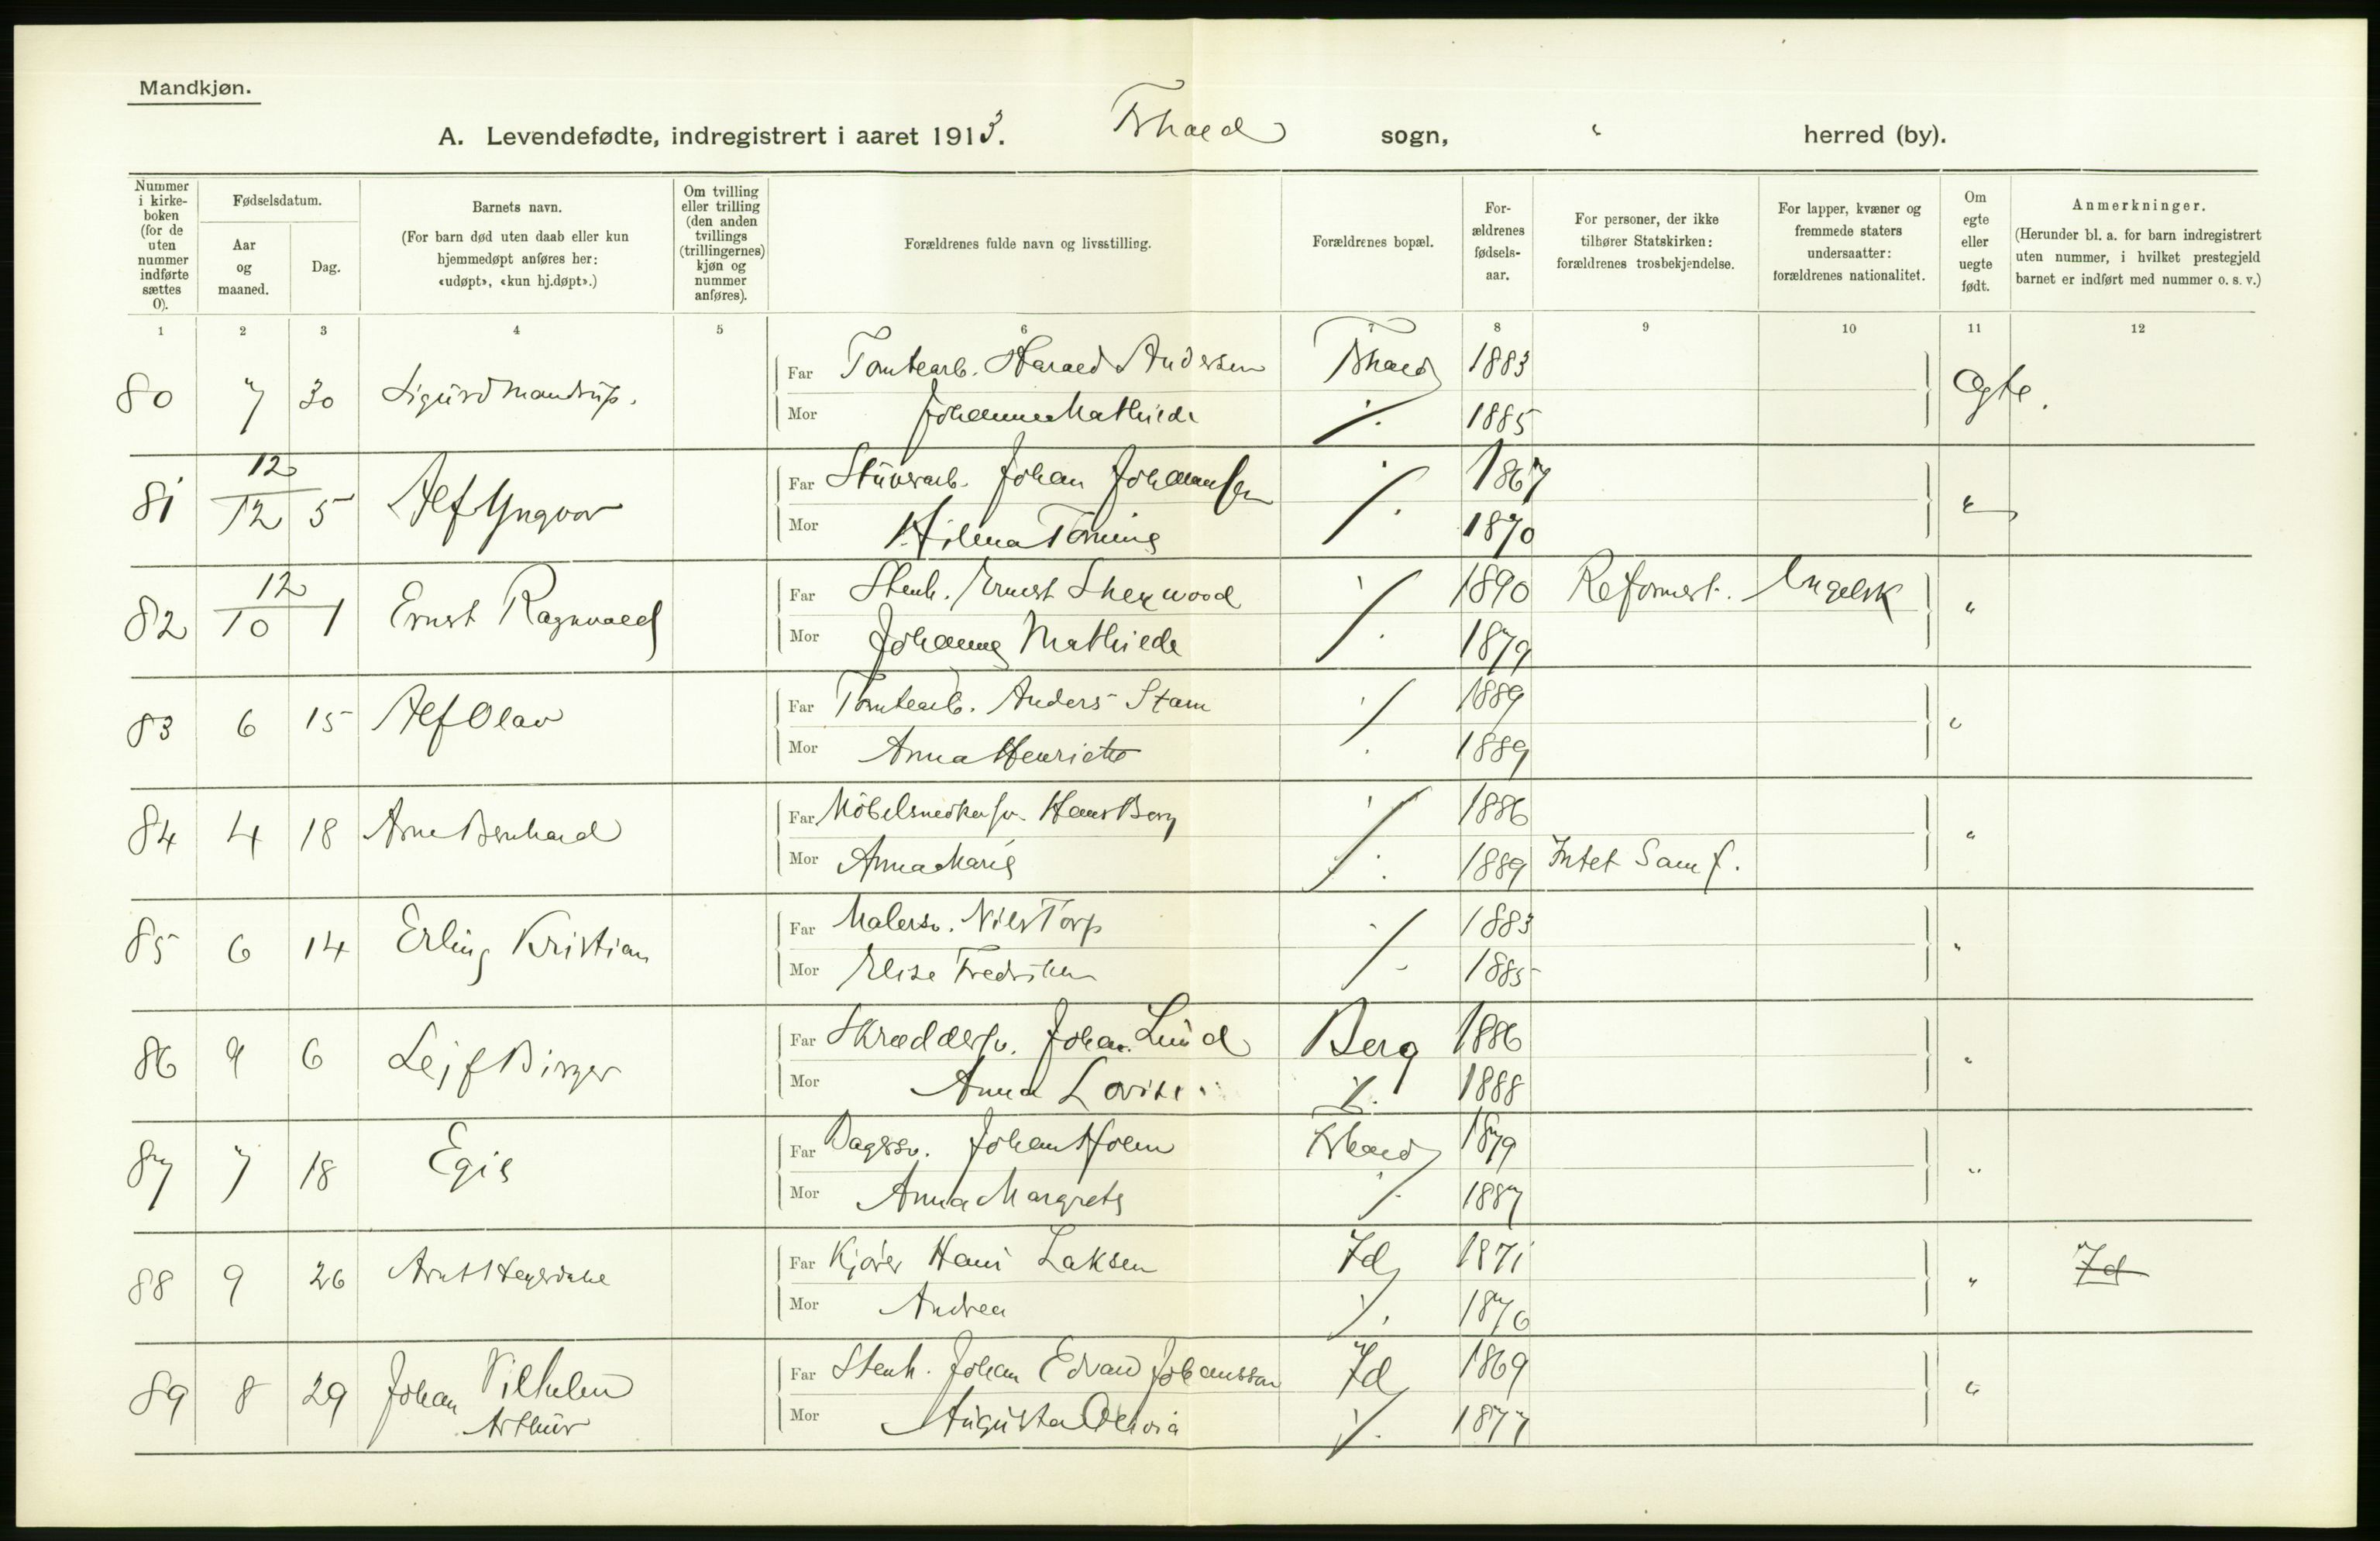 Mandkjøn.
A. Levendefødte, indregistrert i aaret 1913. Fhald sogn, " herred (by).
Nummer i kirke-boken (for de uten nummer indførte sættes 0).
Fødselsdatum.
Aar og maaned.
Dag.
Barnets navn.
(For barn død uten daab eller kun hjemmedøpt anføres her: «udøpt», «kun hj.døpt».)
Om tvilling eller trilling (den anden tvillings (trillingernes) kjøn og nummer anføres).
Forældrenes fulde navn og livsstilling.
Forældrenes bopæl.
For-ældrenes fødsels-aar.
For personer, der ikke tilhører Statskirken: forældrenes trosbekjendelse.
For lapper, kvæner og fremmede staters undersaatter: forældrenes nationalitet.
Om egte eller uegte født.
Anmerkninger.
(Herunder bl. a. for barn indregistrert uten nummer, i hvilket prestegjeld barnet er indført med nummer o. s. v.)
1 2 3 4 5 6 7 8 9 10 11 12
80 7 30 Sigurd Mandrup. Far Tomtearb. Harald Andersen Fhald 1883 Egte.
Mor Johanne Mathilde ⁒ 1885
81 12/12 5 Alf Yngvar Far Stuverarb. Johan Johansen ⁒ 1867 "
Mor Hilma 1870
82 12/10 1 Ernst Ragnvald Far Stenh. Ernest Sherwood ⁒ 1890 Reformert. Engelsk "
Mor Johanne Mathilde 1879
83 6 15 Alf Olav Far Tomtearb. Anders Stam ⁒ 1889 "
Mor Anna Henriette 1889
84 4 18 Arne Bernhard Far Møbelsnedkersv. Hans Berg ⁒ 1886 "
Mor Anna Marie 1889 Intet Samf.
85 6 14 Erling Kristian Far Malersv. Nils Torp ⁒ 1883 "
Mor Elise Fredrikke 1885
86 9 6 Leif Birger Far Skræddersv. Johan Lund Berg 1886 "
Mor Anna Lovise ⁒ 1888
87 7 18 Egil Far Bagersv. Johan Holm Fhald 1879 "
Mor Anna Margrete ⁒ 1887
88 9 26 Arnt Far Kjører Hans Laksen Id 1871 " Id
Mor Andrea ⁒ 1876
89 8 29 Johan Vilhelm Far Stenh. Johan Edvard Johansson Id 1869 "
Arthur Mor Augusta Olivia ⁒ 1877